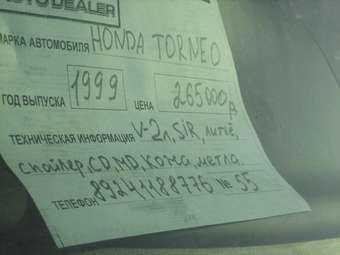 AUTO DEALER
МАРКА АВТОМОБИЛЯ HONDA TORNEO
ГОД ВЫПУСКА 1999 ЦЕНА 265000р
ТЕХНИЧЕСКАЯ ИНФОРМАЦИЯ V-2л, SiR, литьё,
спойлер, CD, MD, кожа, метла.
ТЕЛЕФОН 89241188776 № 55